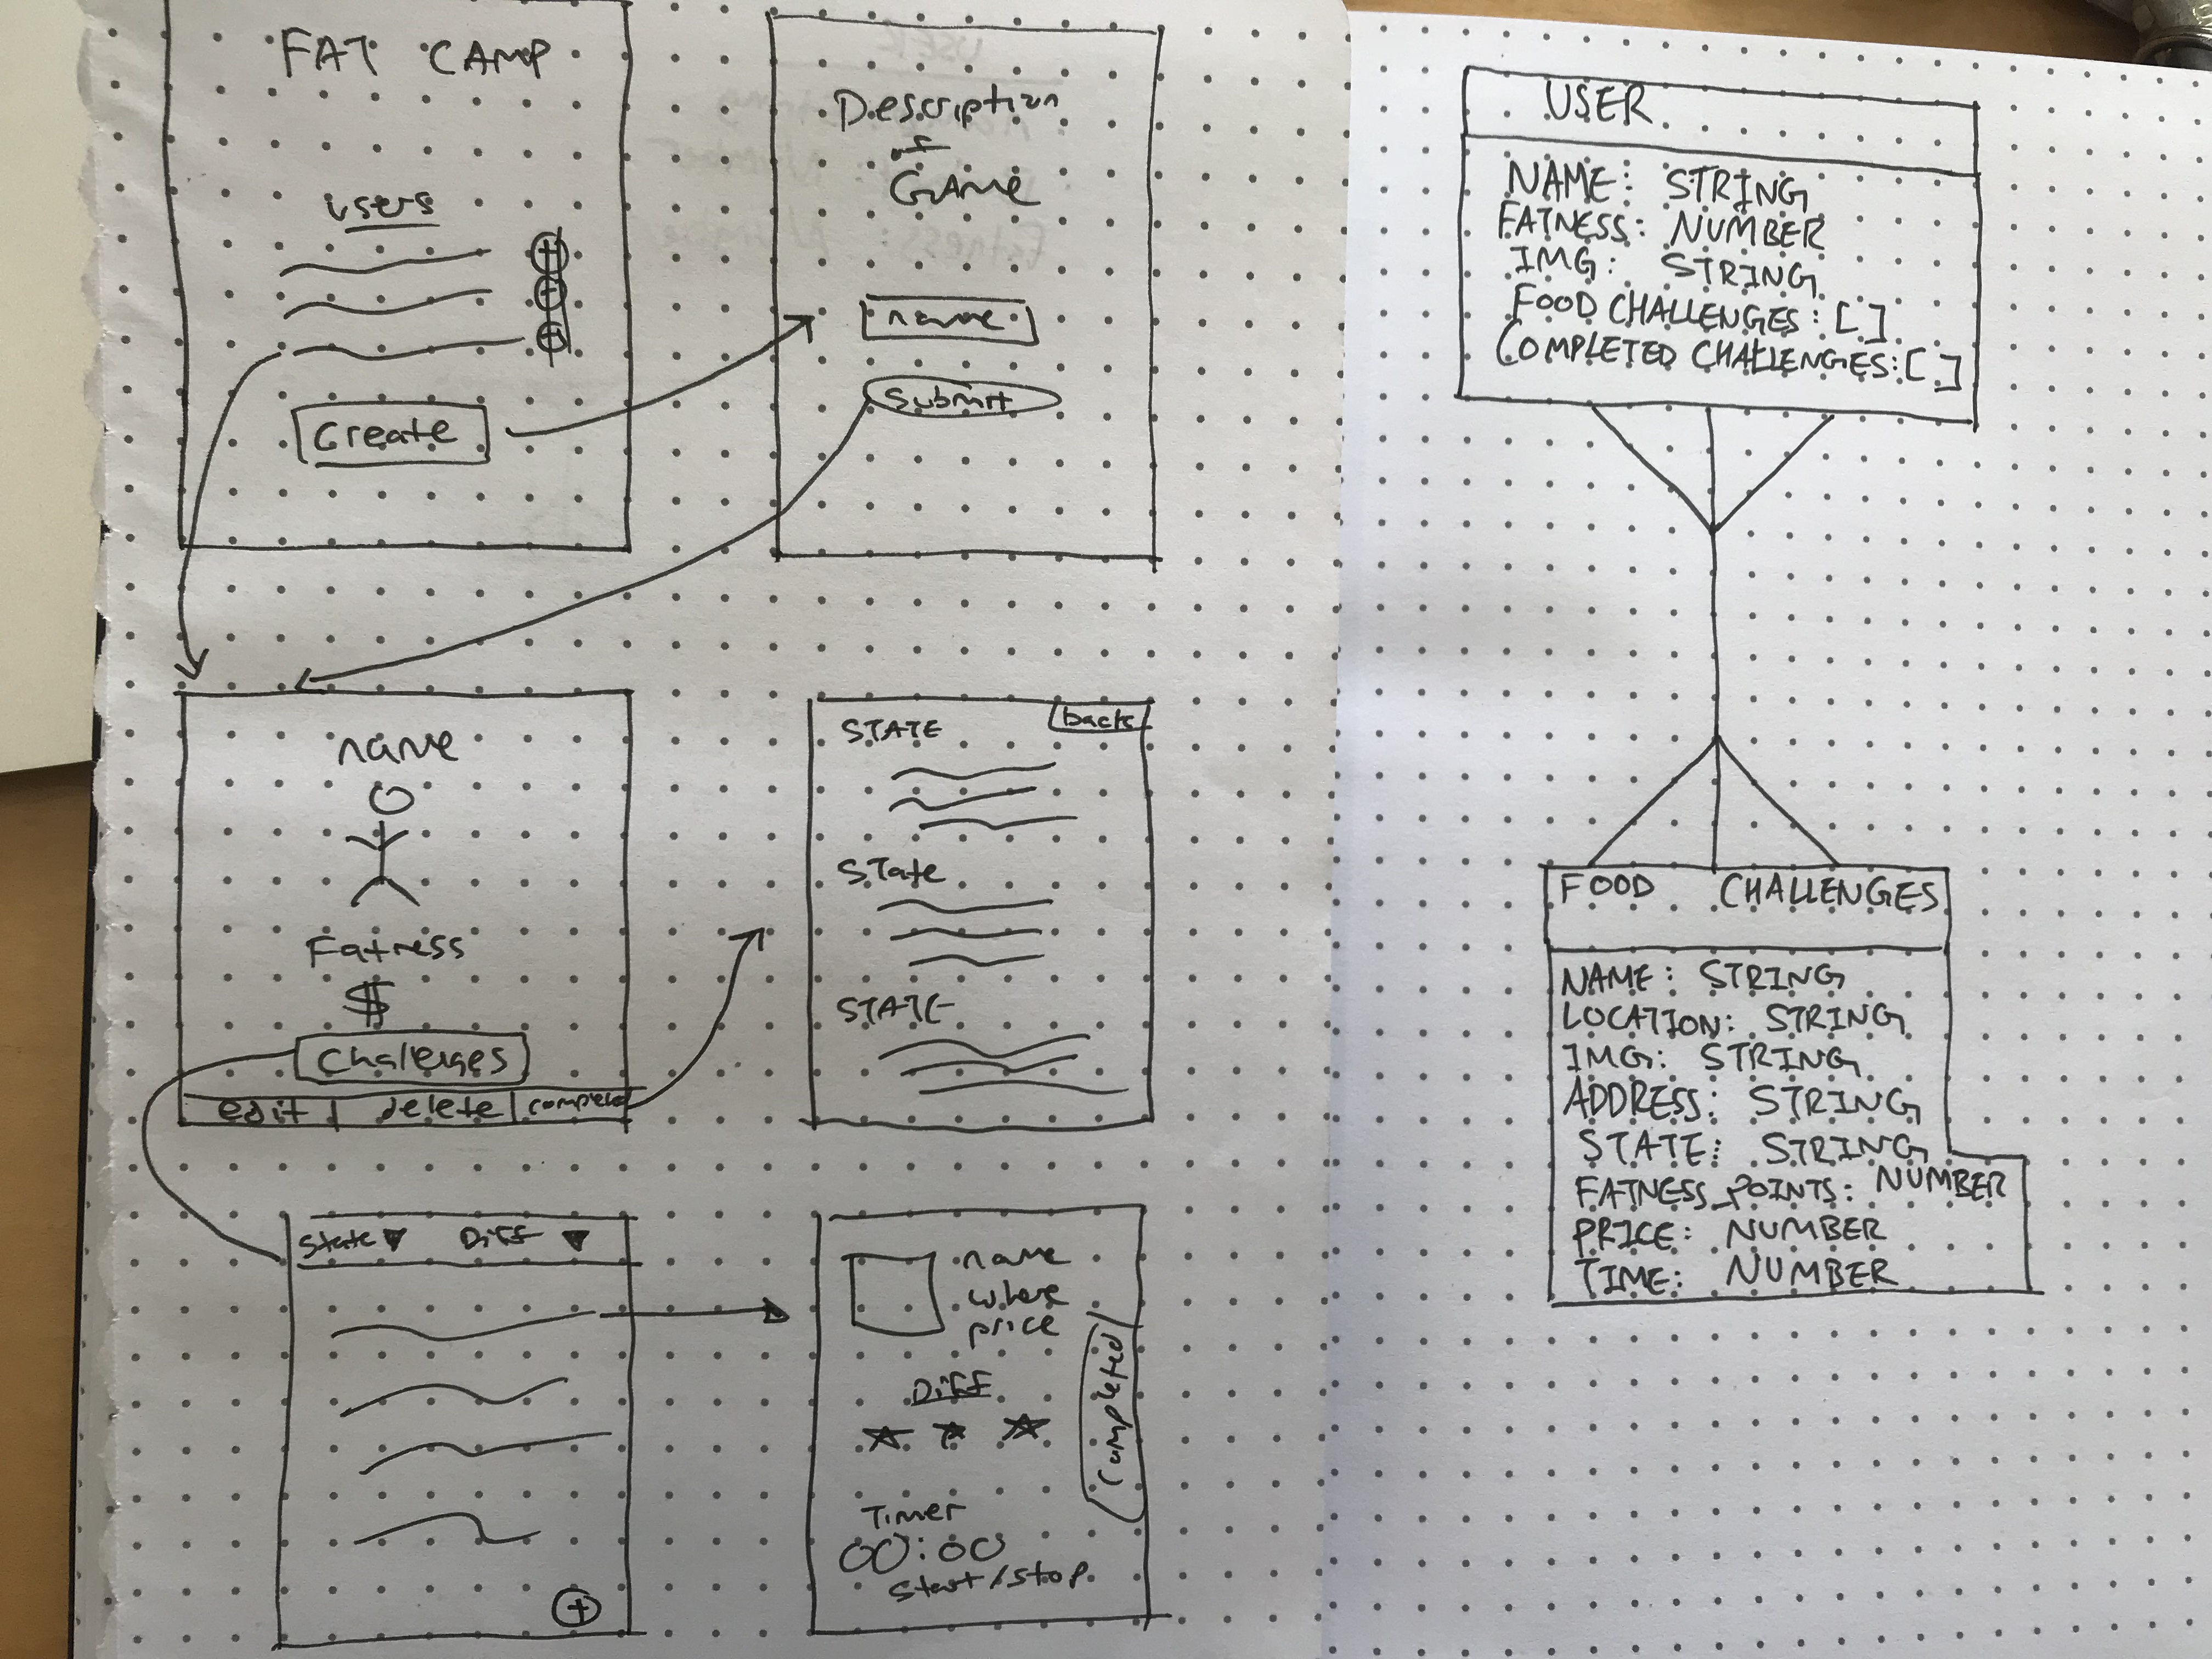 FAT CAMP
users
Create
Description
of
GAME
name
Submit
name
Fatness
$
Challenges
edit | delete | completed
back
STATE
STate
STATE
State ▼ Diff ▼
+
name
where
price
Diff
Timer
00:00
start/stop
Completed
USER
NAME: STRING
FATNESS: NUMBER
IMG: STRING
FOOD CHALLENGES: []
COMPLETED CHALLENGES: []
FOOD CHALLENGES
NAME: STRING
LOCATION: STRING
IMG: STRING
ADDRESS: STRING
STATE: STRING
FATNESS_POINTS: NUMBER
PRICE: NUMBER
TIME: NUMBER